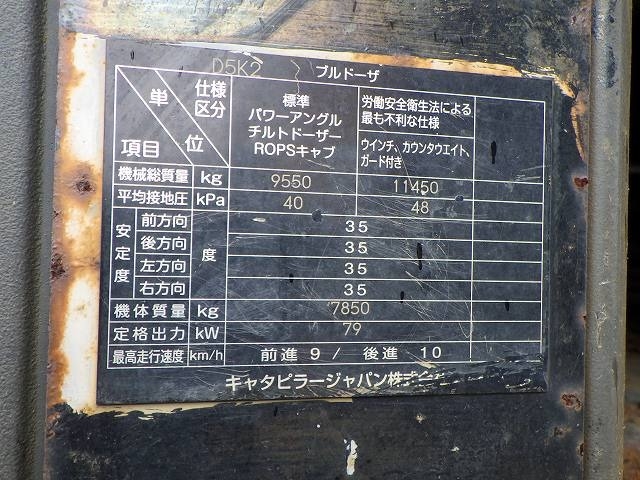 D5K2 ブルドーザ
仕様
区分
単
位
項目
標準
パワーアングル
チルトドーザー
ROPSキャブ
労働安全衛生法による
最も不利な仕様
ウインチ、カウンタウエイト、
ガード付き
機械総質量 kg 9550 11450
平均接地圧 kPa 40 48
安定度 度
前方向 35
後方向 35
左方向 35
右方向 35
機体質量 kg 7850
定格出力 kW 79
最高走行速度 km/h 前進 9 / 後進 10
キャタピラージャパン株式